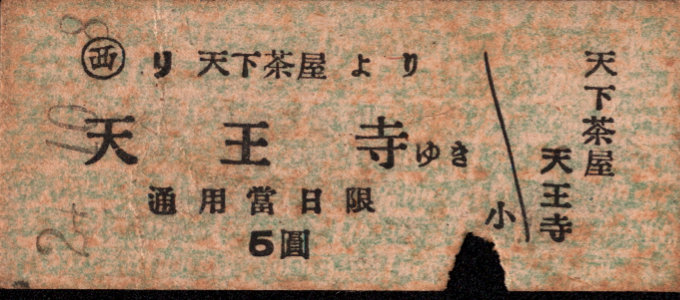 西 り 天下茶屋より
天王寺ゆき
通用當日限
5圓
小
天下茶屋
天王寺